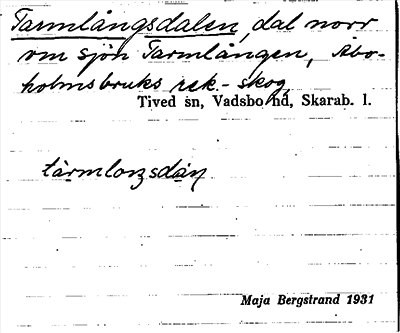 Tarmlångsdalen, dal norr
om sjön Tarmlången, Åbo-
holmsbruks rek.-skog,
Tived sn, Vadsbo hd, Skarab. l.
Maja Bergstrand 1931